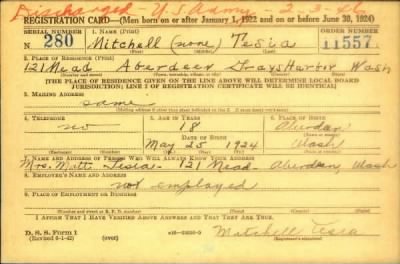 Discharged - U.S. Army - 2-3-46
REGISTRATION CARD—(Men born on or after January 1, 1922 and on or before June 30, 1924)
SERIAL NUMBER
1. NAME (Print)
ORDER NUMBER
N 280
Mitchell (none) Tesia
11557
2. PLACE OF RESIDENCE (Print)
121 Mead Aberdeen Grays Harbor Wash
(THE PLACE OF RESIDENCE GIVEN ON THE LINE ABOVE WILL DETERMINE LOCAL BOARD
JURISDICTION; LINE 2 OF REGISTRATION CERTIFICATE WILL BE IDENTICAL)
3. MAILING ADDRESS
same
4. TELEPHONE
5. AGE IN YEARS
6. PLACE OF BIRTH
no
18
Aberdeen
DATE OF BIRTH
May 25 1924
Wash
7. NAME AND ADDRESS OF PERSON WHO WILL ALWAYS KNOW YOUR ADDRESS
Mrs. Matt Tesia - 121 Mead - Aberdeen, Wash
8. EMPLOYER'S NAME AND ADDRESS
not employed
9. PLACE OF EMPLOYMENT OR BUSINESS
I AFFIRM THAT I HAVE VERIFIED ABOVE ANSWERS AND THAT THEY ARE TRUE.
D. S. S. Form 1
(Revised 6-1-42)
(over)
Mitchell Tesia
(Registrant's signature)